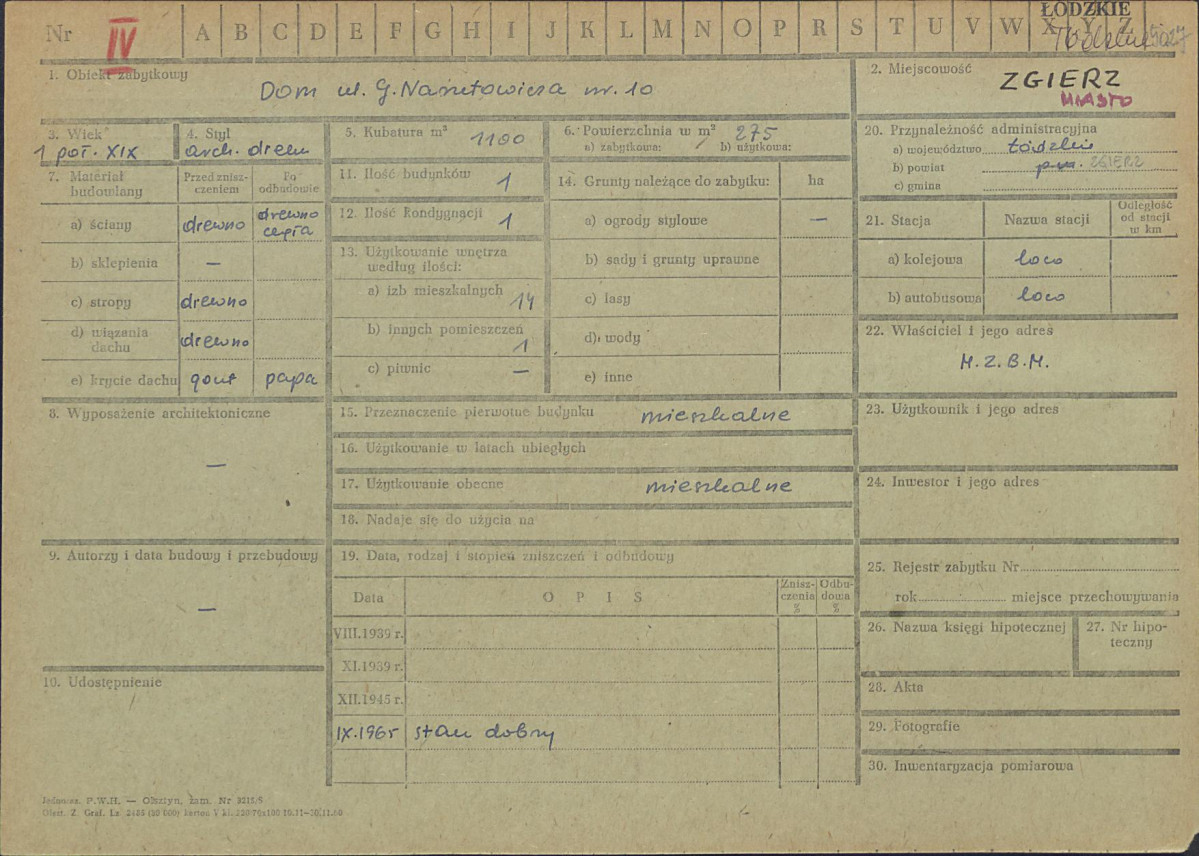 Nr IV A B C D E F G H I J K L M N O P R S T U V W X Y Z
ŁÓDZKIE
1. Obiekt zabytkowy
Dom ul. G. Narutowicza nr. 10
2. Miejscowość
ZGIERZ
MIASTO
3. Wiek
1 poł. XIX
4. Styl
arch. drewn
5. Kubatura m³ 1100
6. Powierzchnia w m² 275
a) zabytkowa: b) użytkowa:
20. Przynależność administracyjna
a) województwo łódzkie
b) powiat ZGIERZ
c) gmina
7. Materiał budowlany
Przed znisz-
czeniem
Po
odbudowie
a) ściany drewno drewno
cegła
b) sklepienia —
c) stropy drewno
d) wiązania
dachu drewno
e) krycie dachu gont papa
11. Ilość budynków 1
12. Ilość kondygnacji 1
13. Użytkowanie wnętrza
według ilości:
a) izb mieszkalnych 14
b) innych pomieszczeń
1
c) piwnic —
14. Grunty należące do zabytku: ha
a) ogrody stylowe —
b) sady i grunty uprawne
c) lasy
d) wody
e) inne
21. Stacja Nazwa stacji
Odległość
od stacji
w km
a) kolejowa loco
b) autobusowa loco
22. Właściciel i jego adres
M.Z.B.M.
8. Wyposażenie architektoniczne
—
15. Przeznaczenie pierwotne budynku mieszkalne
16. Użytkowanie w latach ubiegłych
17. Użytkowanie obecne mieszkalne
18. Nadaje się do użycia na
23. Użytkownik i jego adres
24. Inwestor i jego adres
9. Autorzy i data budowy i przebudowy
—
10. Udostępnienie
19. Data, rodzaj i stopień zniszczeń i odbudowy
Data OPIS
Znisz-
czenia
%
Odbu-
dowa
%
VIII.1939 r.
XI.1939 r.
XII.1945 r.
IX.1965 stan dobry
25. Rejestr zabytku Nr
rok miejsce przechowywania
26. Nazwa księgi hipotecznej
27. Nr hipo-
teczny
28. Akta
29. Fotografie
30. Inwentaryzacja pomiarowa
P.W.H. — Olsztyn, zam. Nr